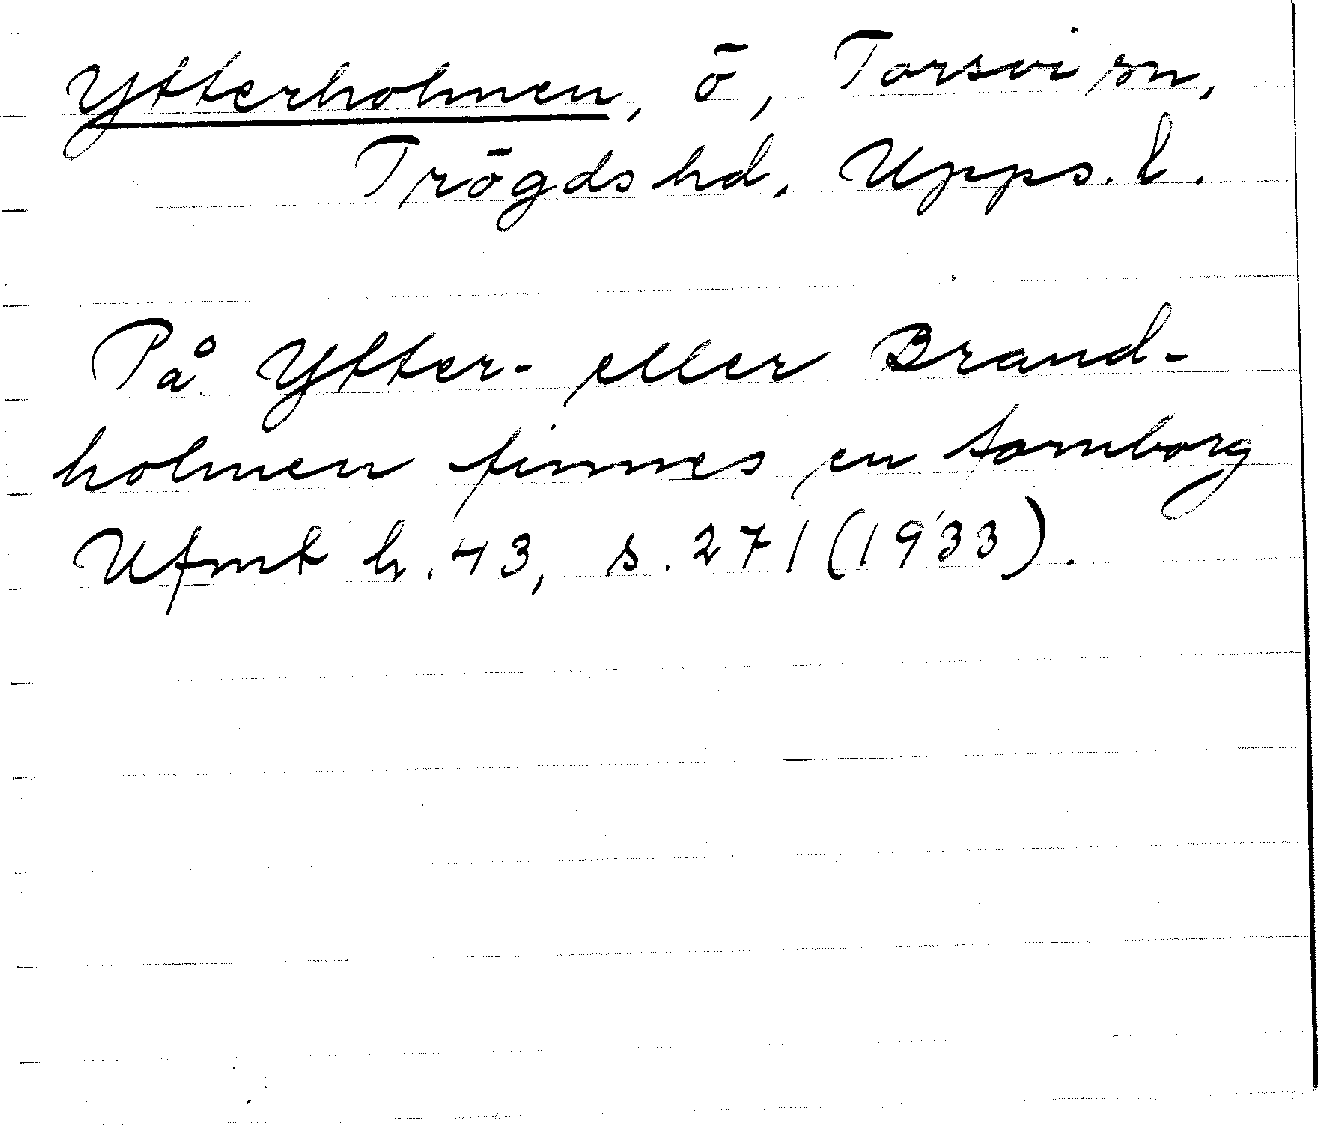 Ytterholmen, ö, Torsvi sn,
Trögds hd, Upps. l.
På Ytter- eller Brand-
holmen finnes en fornborg
Ufmt h. 43, s. 271 (1933).